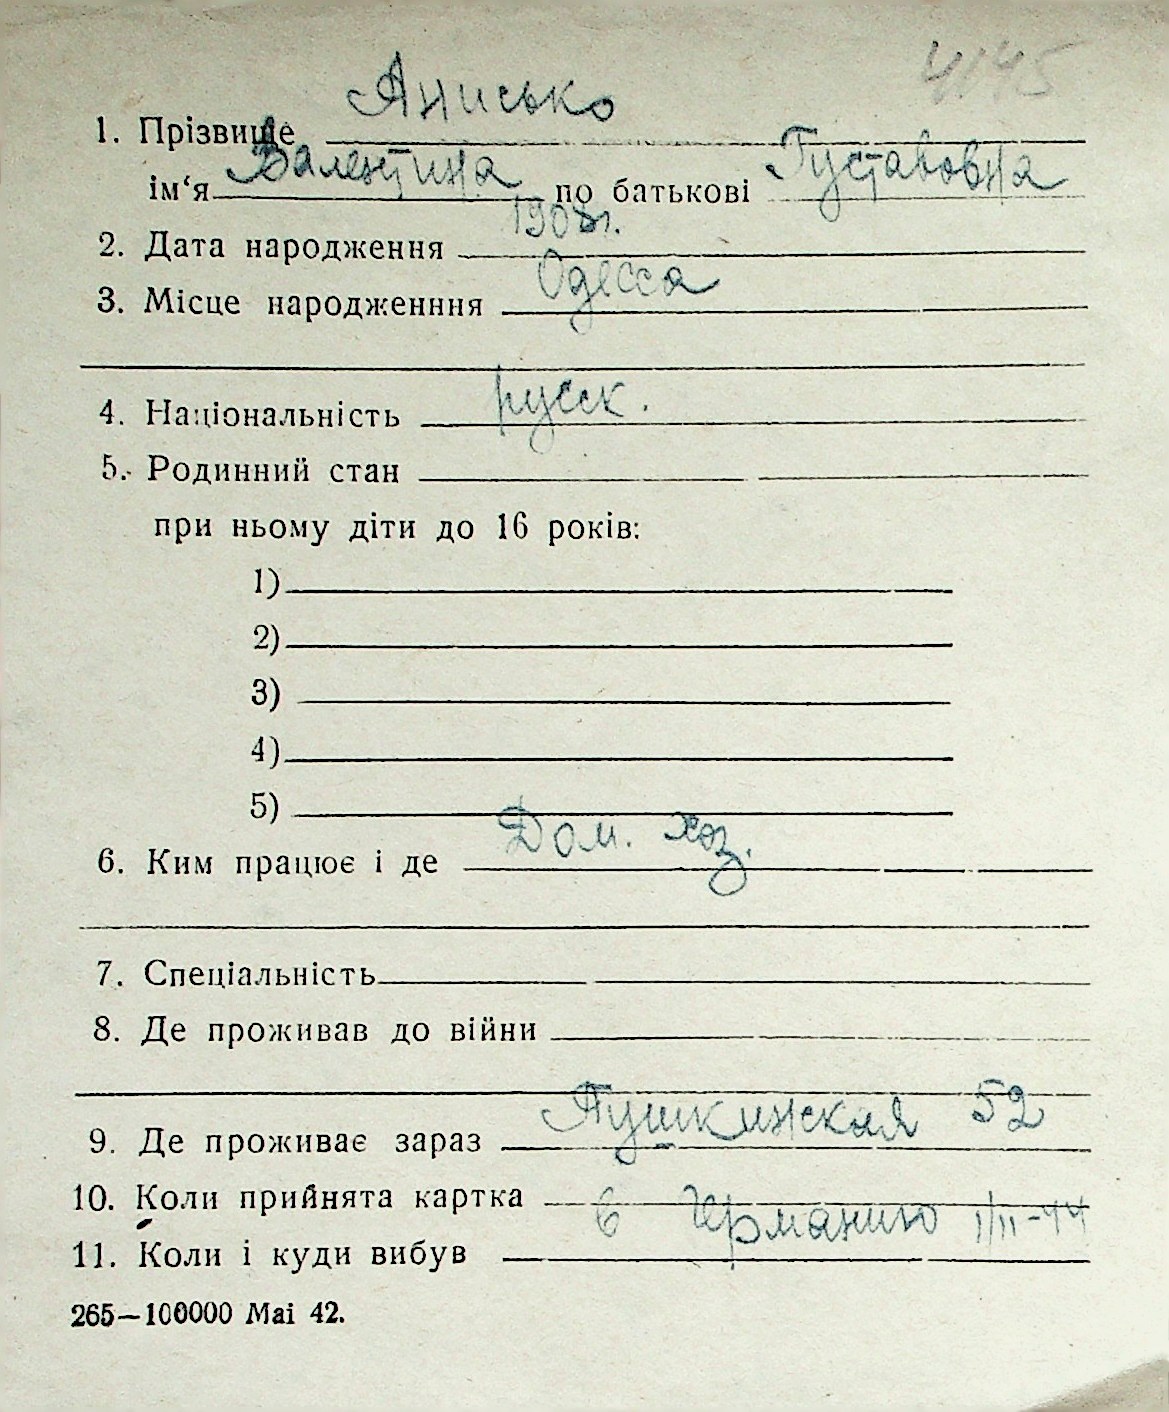 4145
1. Прізвище Анисько
ім‘я Валентина по батькові Густавовна
2. Дата народження 1908г.
3. Місце народженння Одесса
4. Національність русск.
5. Родинний стан
при ньому діти до 16 років:
1)
2)
3)
4)
5)
6. Ким працює і де Дом. хоз.
7. Спеціальність
8. Де проживав до війни
9. Де проживає зараз Пушкинская 52
10. Коли прийнята картка
11. Коли і куди вибув в Германию 1/II-44
265—100000 Mai 42.